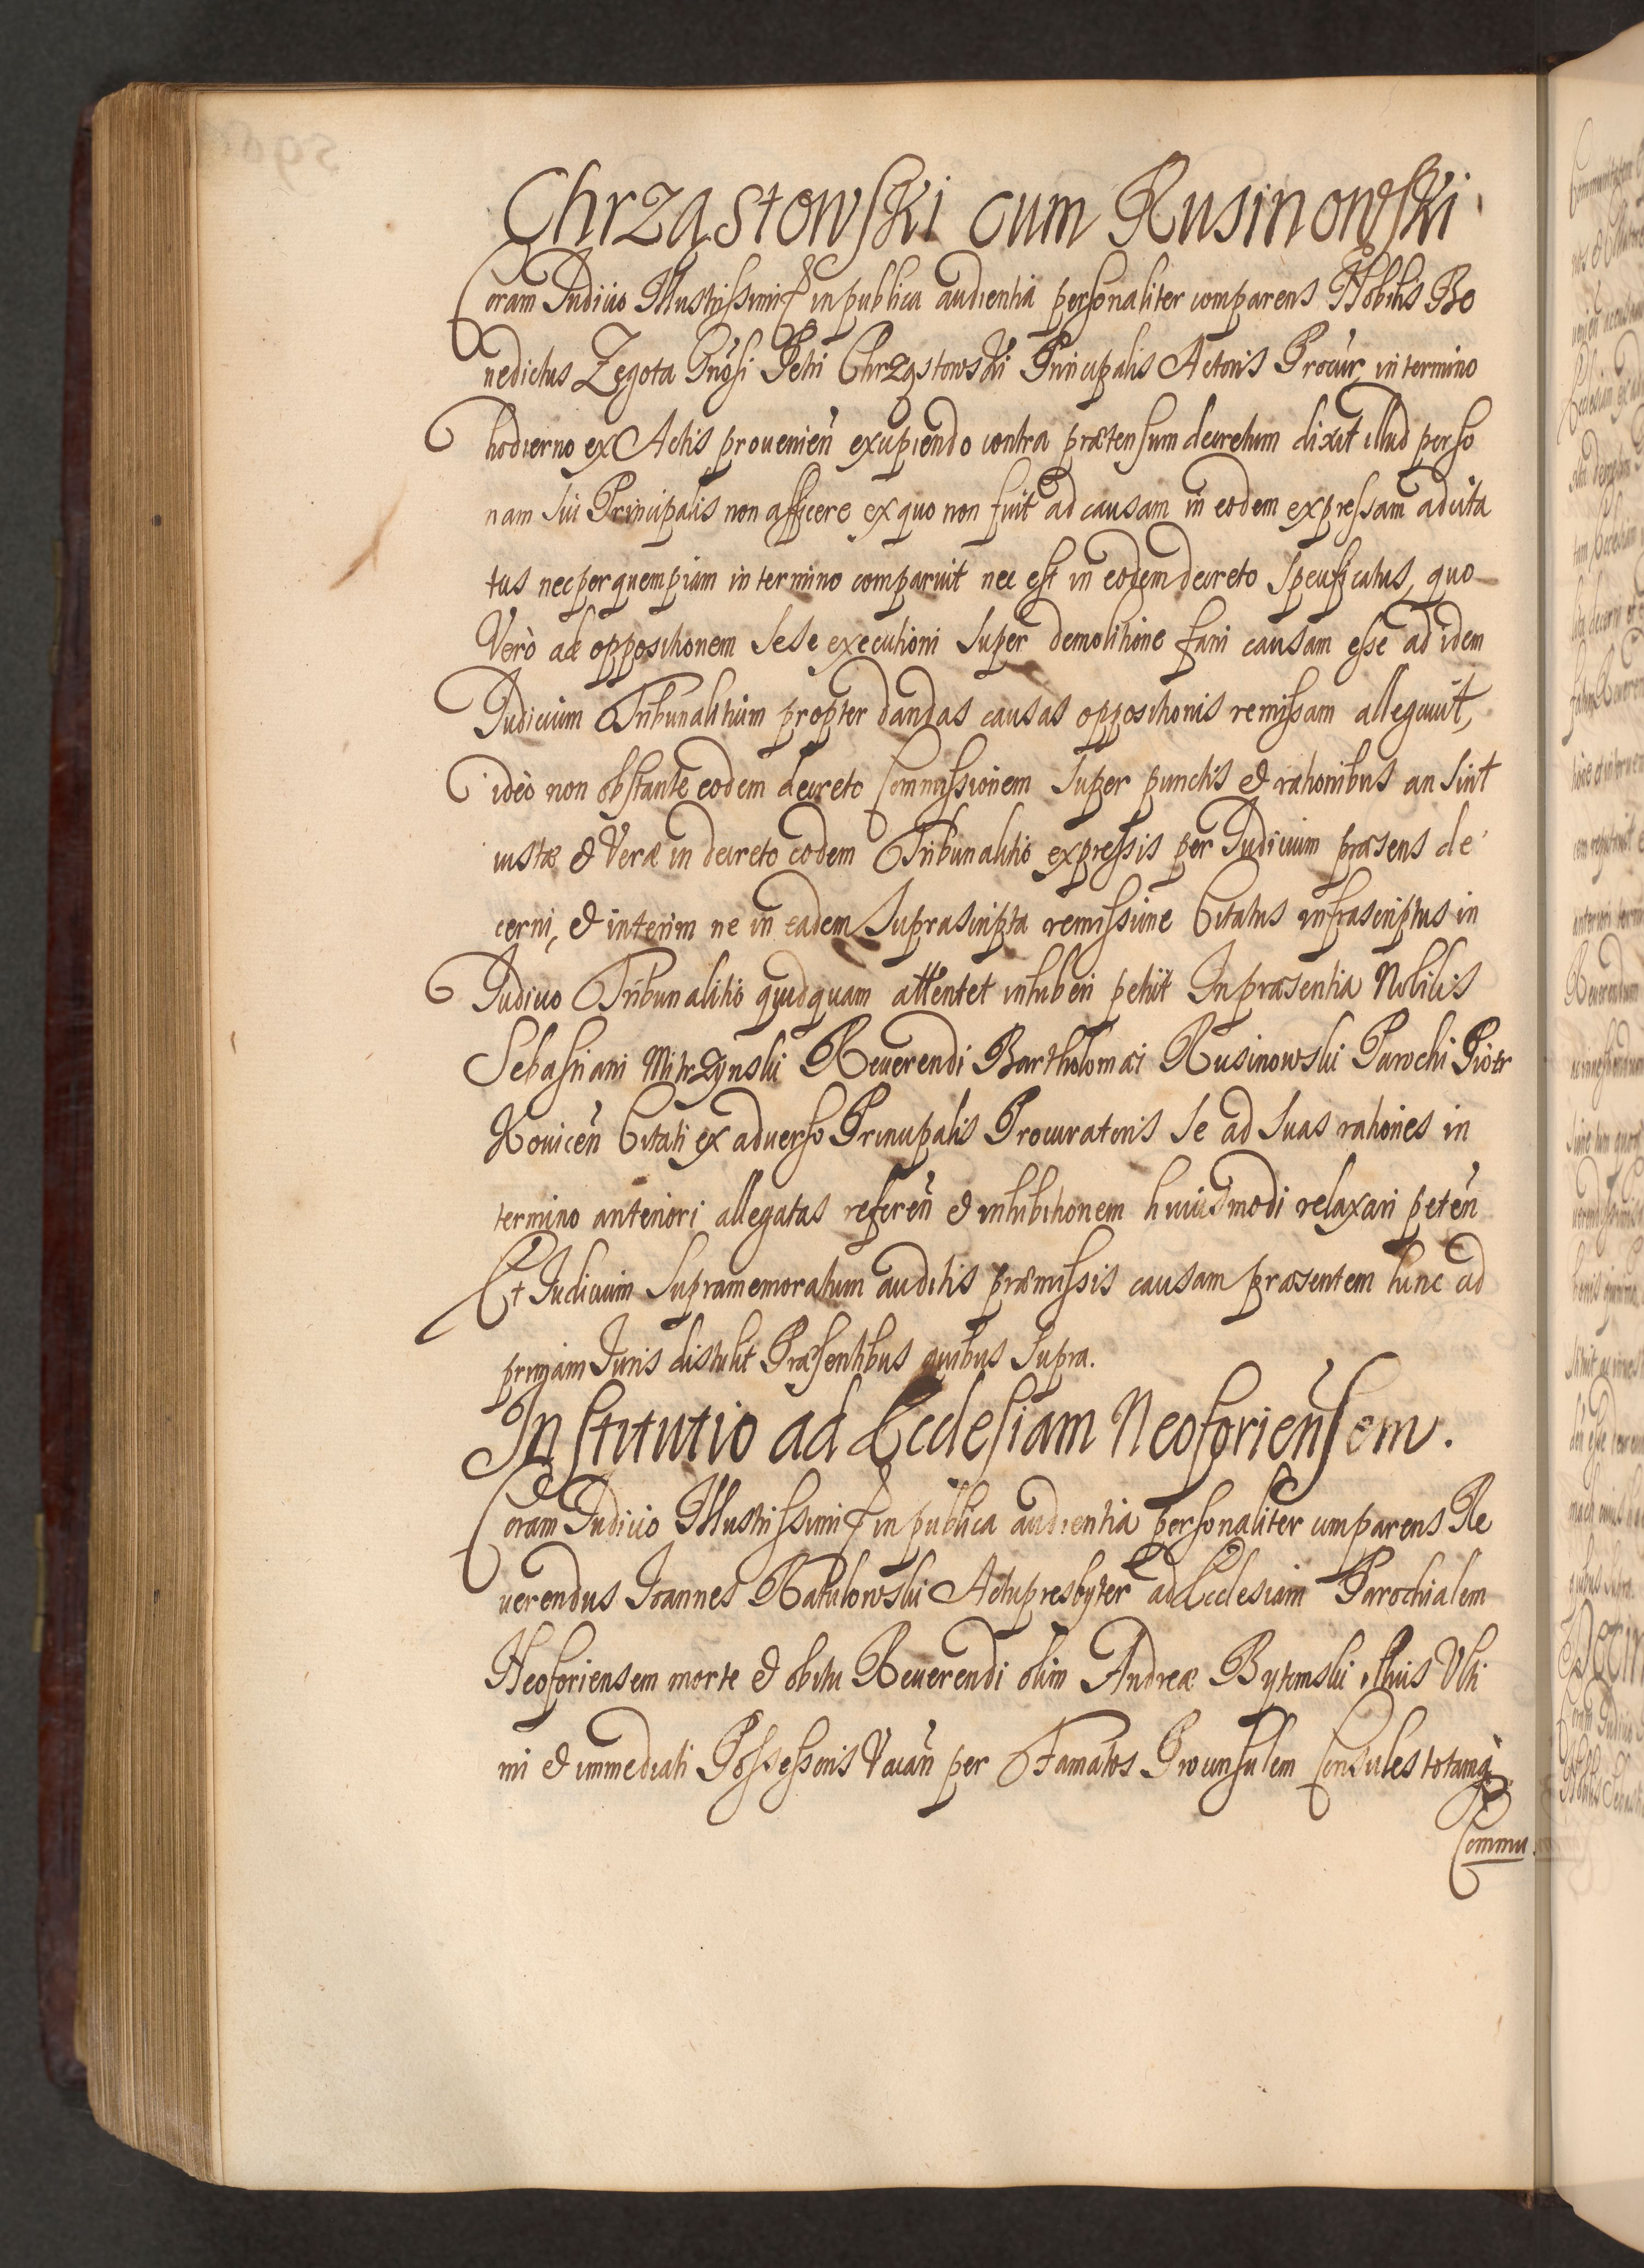 Chrząstowski cum Rusinowski
Coram Iudicio Illustrissimi in publica audientia personaliter comparens Nobilis Be
nedictus Zegota Gnosi Petri Chrząstowski Principalis Actoris Procur in termino
hodierno ex Actis provenien excipiendo contra prætensum decretum dixit illud perso
nam sui Principalis non afficere ex quo non fuit ad causam in eodem expressam adcita
tus nec per quempiam in termino comparuit nec est in eodem decreto specificatus, quo
Verò ad oppositionem sese executioni super demolitione fani causam esse ad idem
Iudicium Tribunalitium propter dandas causas oppositionis remissam allegavit,
ideò non obstante eodem decreto Commissionem super punctis & rationibus an sint
iustæ & Veræ in decreto eodem Tribunalitio expressis per Iudicium præsens de
cerni, & interim ne in eadem suprascripta remissione Citatus infrascriptus in
Iudicio Tribunalitio quidquam attentet inhiberi petiit In præsentia Nobilis
Sebastiani Mitrzynski Reverendi Bartholomæi Rusinowski Parochi Piotr
Kovicen Citati ex adverso Principalis Procuratoris se ad suas rationes in
termino anteriori allegatas referen & inhibitionem huiusmodi relaxari peten
Et Iudicium supramemoratum auditis præmissis causam præsentem hinc ad
primam Iuris distulit Præsentibus quibus supra.
Institutio ad Ecclesiam Neoforiensem.
Coram Iudicio Illustrissimi in publica audientia personaliter comparens Re
verendus Ioannes Ratulowski Actupresbyter ad Ecclesiam Parochialem
Neoforiensem morte & obitu Reverendi olim Andreæ Bytomski illius Ulti
mi & immediati Possessoris Vacan per Famatos Proconsulem Consules totamq
Commu